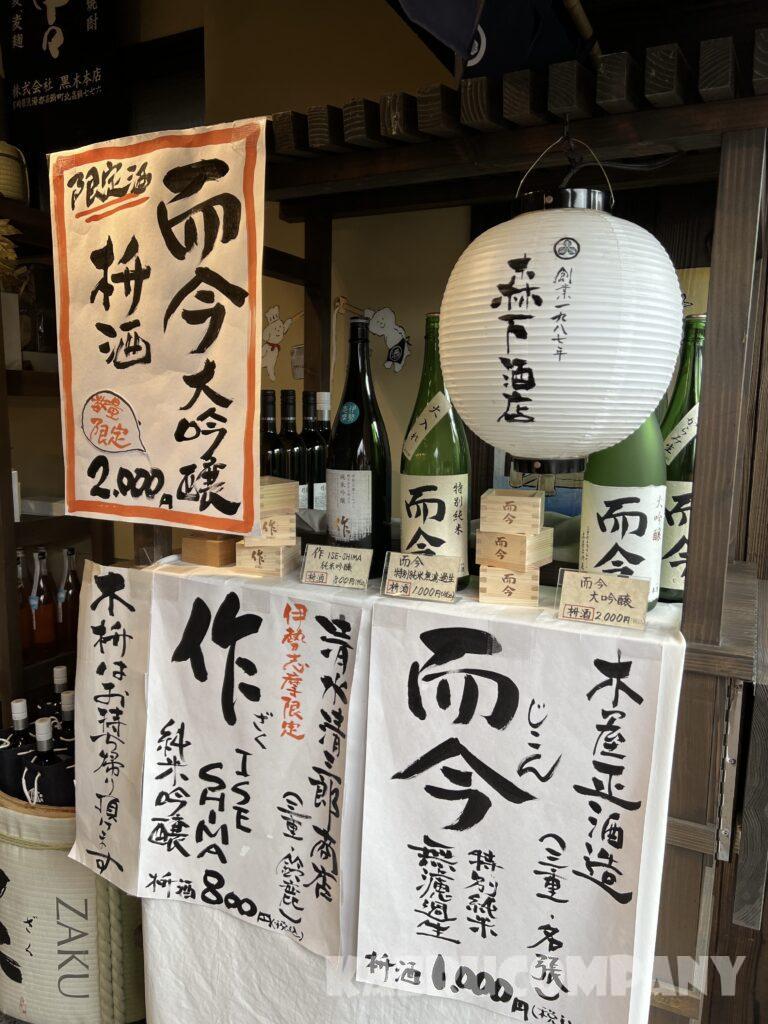 焼酎
株式会社 黒木本店
限定酒
而今 大吟醸
枡酒
数量
限定
2,000円
創業一九八七年
森下酒店
伊勢
志摩
純米吟醸
作
火入れ
特別純米
而今
大吟醸
而今
而今
作
作
而今
而今
而今
作 ISE-SHIMA
純米吟醸
枡酒 800円(税込)
而今
特別純米無濾過生
枡酒 1,000円(税込)
而今
大吟醸
枡酒 2,000円(税込)
木枡はお持ち帰り頂けます
清水清三郎商店
(三重・鈴鹿)
伊勢志摩限定
作
ざく
ISE
SHIMA
純米吟醸
枡酒 800円(税込)
木屋正酒造
(三重・名張)
而今
じこん
特別純米
無濾過生
枡酒 1,000円(税込)
ざく
ZAKU
KAERUCOMPANY